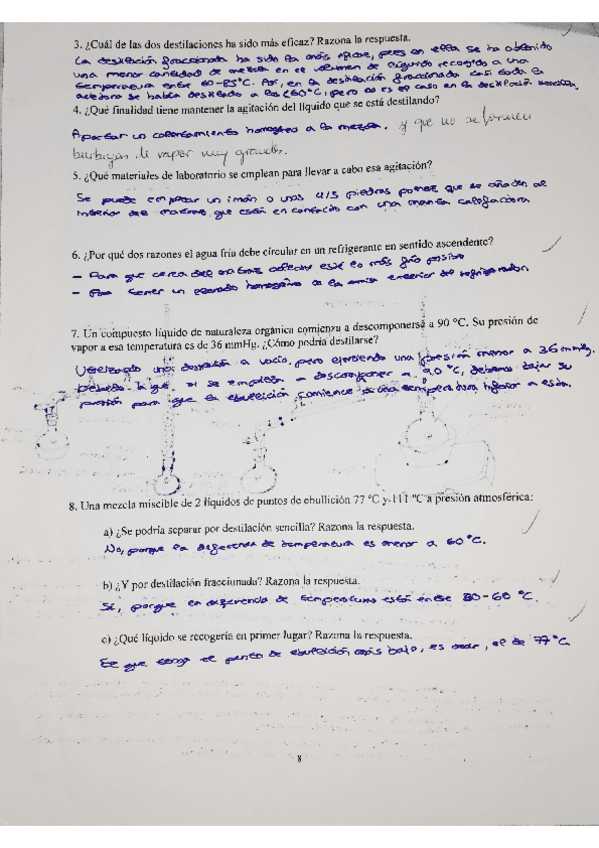 3. ¿Cuál de las dos destilaciones ha sido más eficaz? Razona la respuesta.
La destilación fraccionada ha sido la más eficaz, pues en ella se ha obtenido
una menor cantidad de mezcla en el volumen de líquido recogido a una
temperatura entre 60-85°C. Así, en la destilación fraccionada casi toda la
acetona se había destilado a los <60°C, pero no es el caso en la destilación sencilla.
4. ¿Qué finalidad tiene mantener la agitación del líquido que se está destilando?
Aportar un calentamiento homogéneo a la mezcla. y que no se formen
burbujas de vapor muy grandes.
5. ¿Qué materiales de laboratorio se emplean para llevar a cabo esa agitación?
Se puede emplear un imán o unas 4/5 piedras pómez que se añaden al
interior del matraz que están en contacto con una manta calefactora
6. ¿Por qué dos razones el agua fría debe circular en un refrigerante en sentido ascendente?
- Para que cerca del matraz colector esté lo más frío posible
- Para tener un llenado homogéneo de la camisa exterior del refrigerador.
7. Un compuesto líquido de naturaleza orgánica comienza a descomponerse a 90 °C. Su presión de
vapor a esa temperatura es de 36 mmHg. ¿Cómo podría destilarse?
Utilizando una destilación a vacío, pero ejerciendo una presión menor a 36 mmHg.
Debido a que si se empieza a descomponer a 90 °C, debemos bajar su
presión para que la ebullición comience a una temperatura inferior a esta.
8. Una mezcla miscible de 2 líquidos de puntos de ebullición 77 °C y 111 °C a presión atmosférica:
a) ¿Se podría separar por destilación sencilla? Razona la respuesta.
No, porque la diferencia de temperatura es menor a 60 °C.
b) ¿Y por destilación fraccionada? Razona la respuesta.
Sí, porque la diferencia de temperaturas está entre 30-60 °C.
c) ¿Qué líquido se recogería en primer lugar? Razona la respuesta.
El que tenga el punto de ebullición más bajo, es decir, el de 77 °C.
8